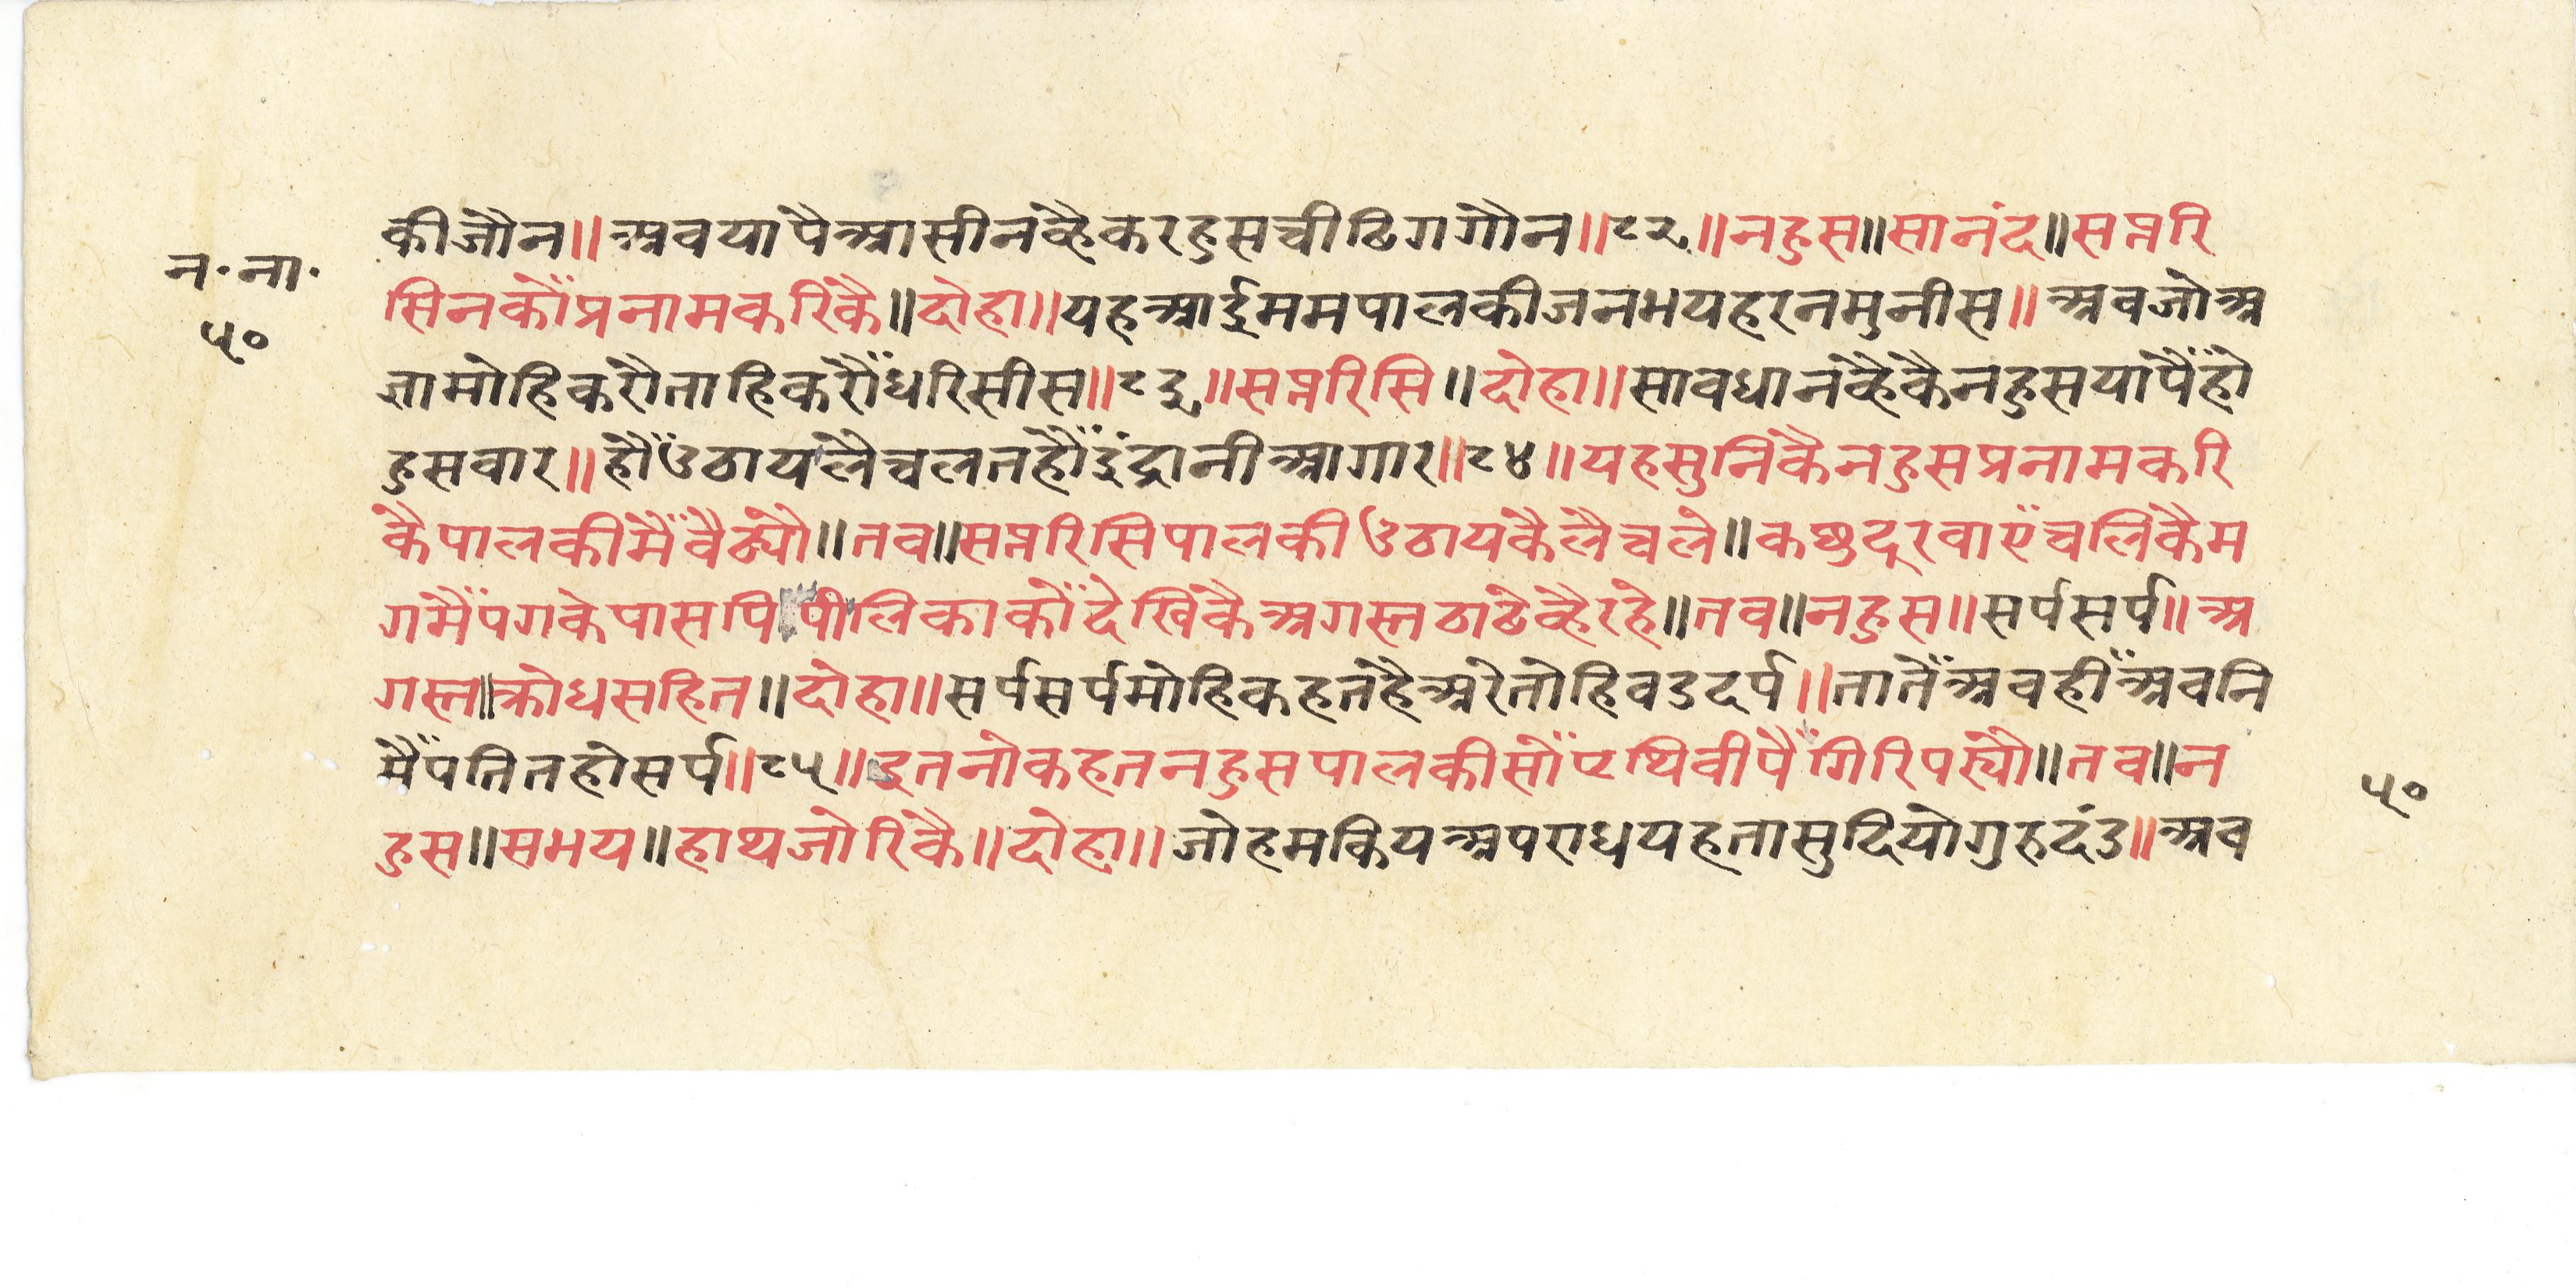 कीजौन॥अवयापैआसीनव्हैकरहुसचीढिगगौन॥८२॥नहुस॥सानंद॥सप्तरि
न॰ना॰
सिनकौंप्रनामकरिकै॥दोहा॥यहआईममपालकीजनभयहरनमुनीस॥अवजोअ
५०
ज्ञामोहिकरौताहिकरौंधरिसीस॥८३॥सप्तरिसि॥दोहा॥सावधानव्हैकैनहुसयापैंहो
हुसवार॥हौंउठायलैचलतहौंइंद्रानीआगार॥८४॥यहसुनिकैनहुसप्रनामकरि
कैपालकीमैंवैठ्यौ॥तव॥सप्तरिसिपालकीउठायकैलैचले॥कछुदूरवाएंचलिकैम
गमैंपगकेपासपिपीलिकाकौंदेखिकैअगस्तठाढेव्हैरहे॥तव॥नहुस॥सर्पसर्प॥अ
गस्त॥क्रोधसहित॥दोहा॥सर्पसर्पमोहिकहतहैअरेतोहिवडदर्प॥तातैंअवहींअवनि
मैंपतितहोसर्प॥८५॥इतनोकहतनहुसपालकीसौंप्रथिवीपैंगिरिपर्‍यौ॥तव॥न
५०
हुस॥सभय॥हाथजोरिकै॥दोहा॥जोहमकियअपराधयहतासुदियोगुरुदंड॥अव